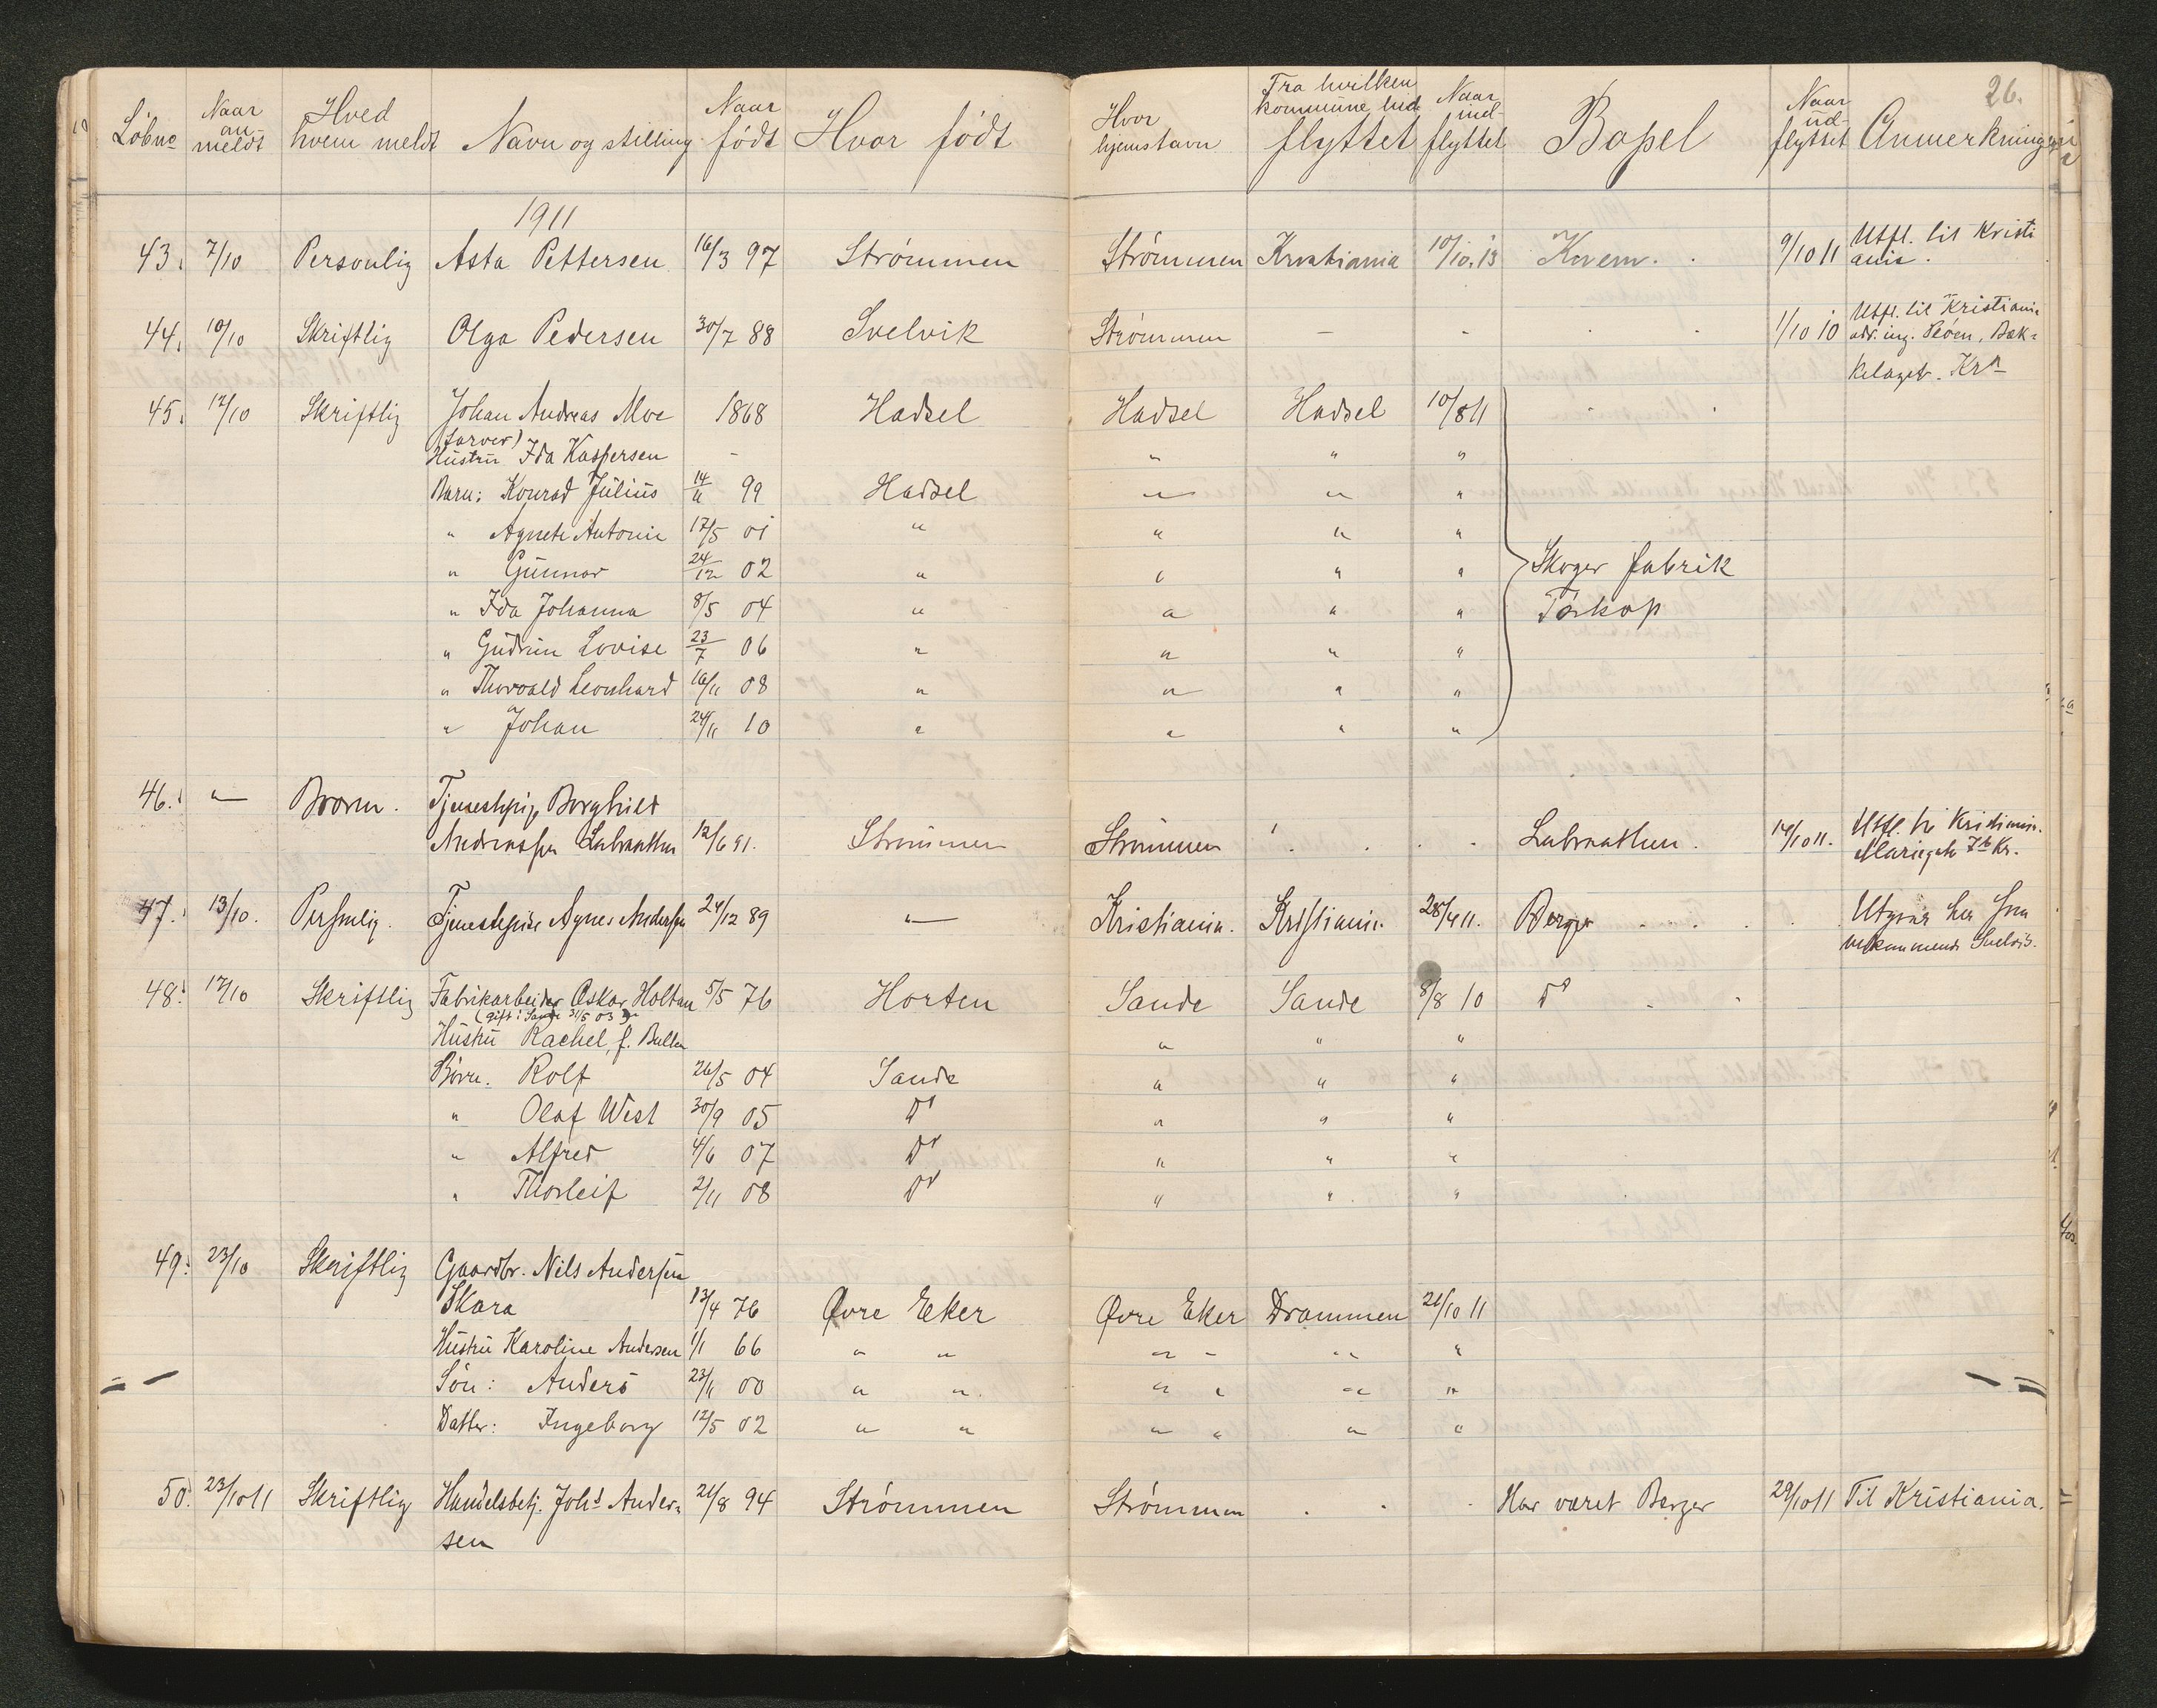 26.
Löbno Naar anmeldt Hved hvem meldt Navn og stilling Naar födt Hvor födt Hvor hjemstavn Fra hvilken kommune indflyttet Naar indflyttet Bopel Naar udflyttet Anmerkninger
1911
43. 7/10 Personlig Asta Pettersen 16/3 97 Strömmen Strömmen Kristiania 10/10.13 Knem. 9/10 11 Utfl. til Kristi
ania.
44. 10/10 Skriftlig Olga Pedersen 30/7 88 Svelvik Strömmen - - 1/10 10 Utfl. til Kristiania
adr. ing. Bæk-
kelaget. Kra
45. 12/10 Skriftlig Johan Andreas Moe 1868 Hadsel Hadsel Hadsel 10/8 11
(farver)
Hustru Ida Kaspersen - " " "
Barn: Konrad Julius 14/11 99 Hadsel " " "
" Agnete Antonie 17/5 01 " " " "
" Gunnar 24/12 02 " " " " Skoger fabrik
" Ida Johanna 8/5 04 " " " " Torkop
" Gudrun Lovise 23/7 06 " " " "
" Thorvald Leonhard 16/11 08 " " " "
" Johan 24/11 10 " " " "
46. " Tjenestepige Borghild
Andreassen Labraathen 12/6 91. Strömmen Strömmen Labraathen. 14/10 11. Utfl. til Kristiania.
Mariegate 76 Kr.
47. 13/10. Personlig. Tjenestepige Agnes Andersen 24/12 89 " Kristiania. Kristiania. 28/4 11. Berger Svelvik.
48. 17/10 Skriftlig Fabrikarbeider Oskar Holtan 5/5 76 Horten Sande Sande 8/8 10 Do
(gift i Sande 31/5 03)
Hustru Rachel, f. " " "
Börn. Rolf 26/5 04 Sande " " "
" Olaf West 30/9 05 Do " " "
" Alfred 4/6 07 Do " " "
" Thorleif 2/11 08 Do " " "
49. 23/10 Skriftlig Gaardbr. Nils Andersen
Skara 13/4 76 Øvre Eker Øvre Eker Drammen 21/10 11
Hustru Karoline Andersen 1/1 66 " " " " " "
Sön: Anders 23/11 00 " " " " " "
Datter: Ingeborg 12/5 02 " " " " " "
50. 23/10 11 Skriftlig Handelsbetj. Johs Ander- 21/8 94 Strömmen Strömmen Har været Berger 29/10 11 Til Kristiania.
sen